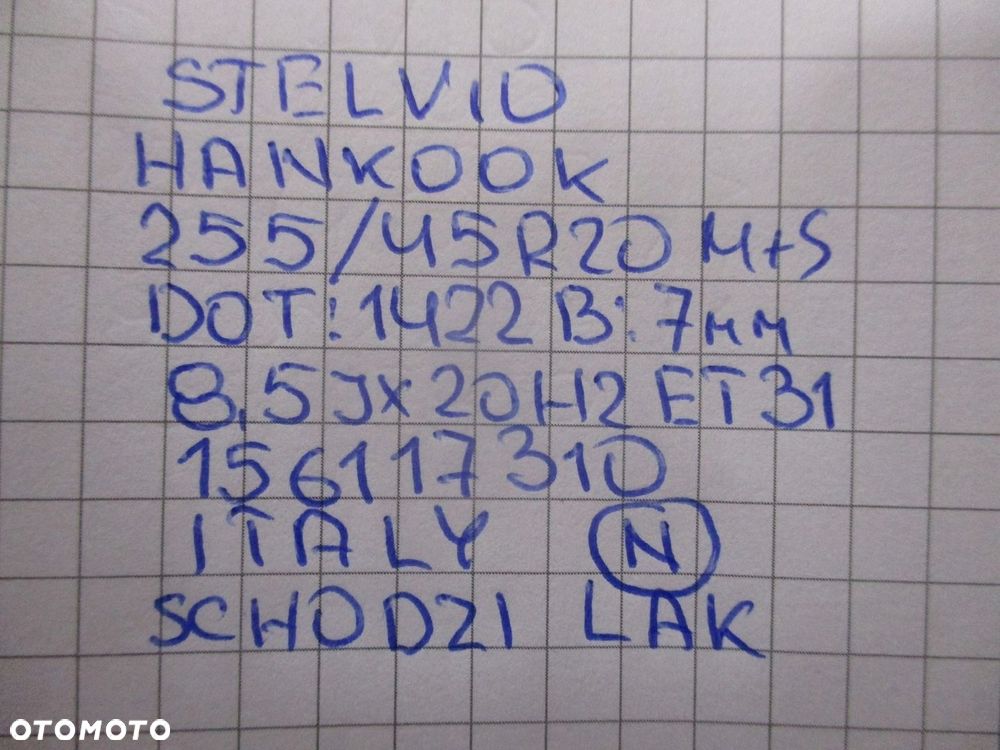 STELVIO
HANKOOK
255/45R20 M+S
DOT:1422 B:7mm
8,5JX20H2 ET31
156117310
ITALY N
SCHODZI LAK
OTOMOTO